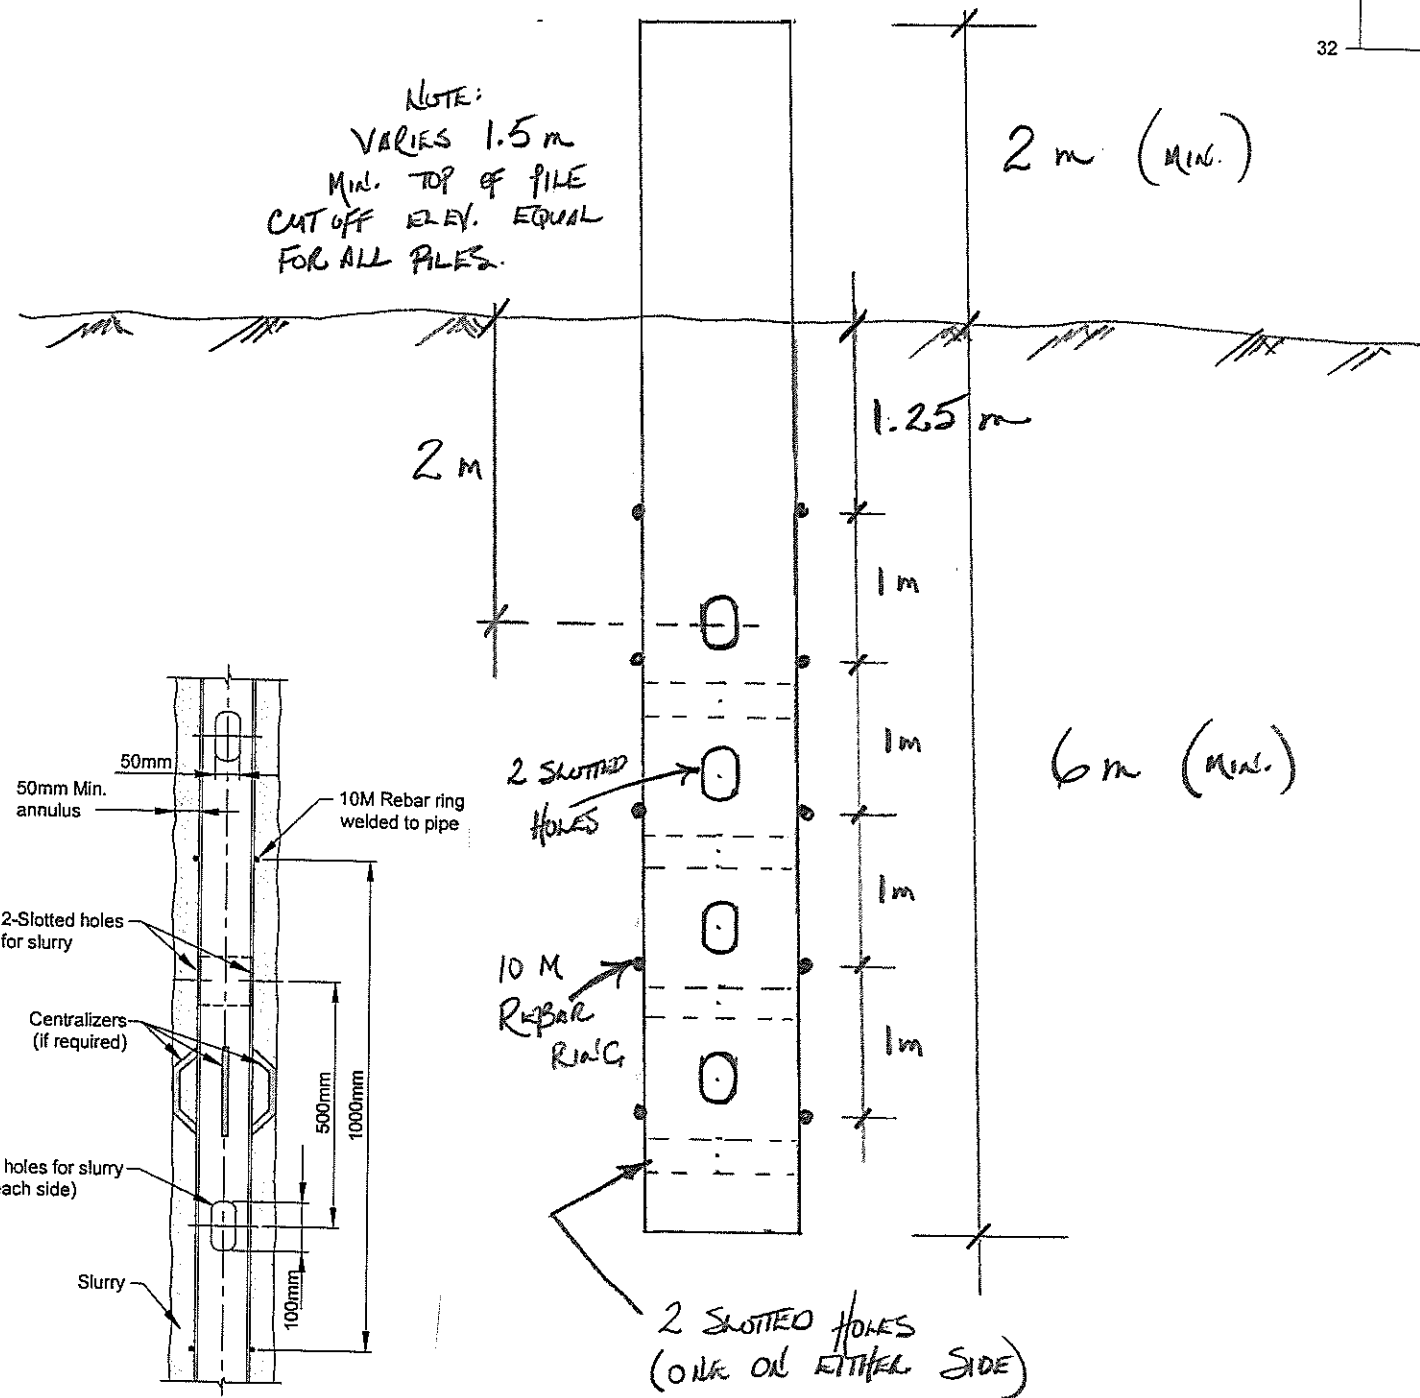 32
NOTE:
VARIES 1.5 m
MIN. TOP OF PILE
CUT OFF ELEV. EQUAL
FOR ALL PILES.
2 m (MIN.)
1.25 m
2 m
1 m
1 m
1 m
1 m
6 m (MIN.)
2 SLOTTED
HOLES
10 M
REBAR
RING
2 SLOTTED HOLES
(ONE ON EITHER SIDE)
50mm
50mm Min.
annulus
10M Rebar ring
welded to pipe
2-Slotted holes
for slurry
Centralizers
(if required)
500mm
1000mm
holes for slurry
each side)
100mm
Slurry